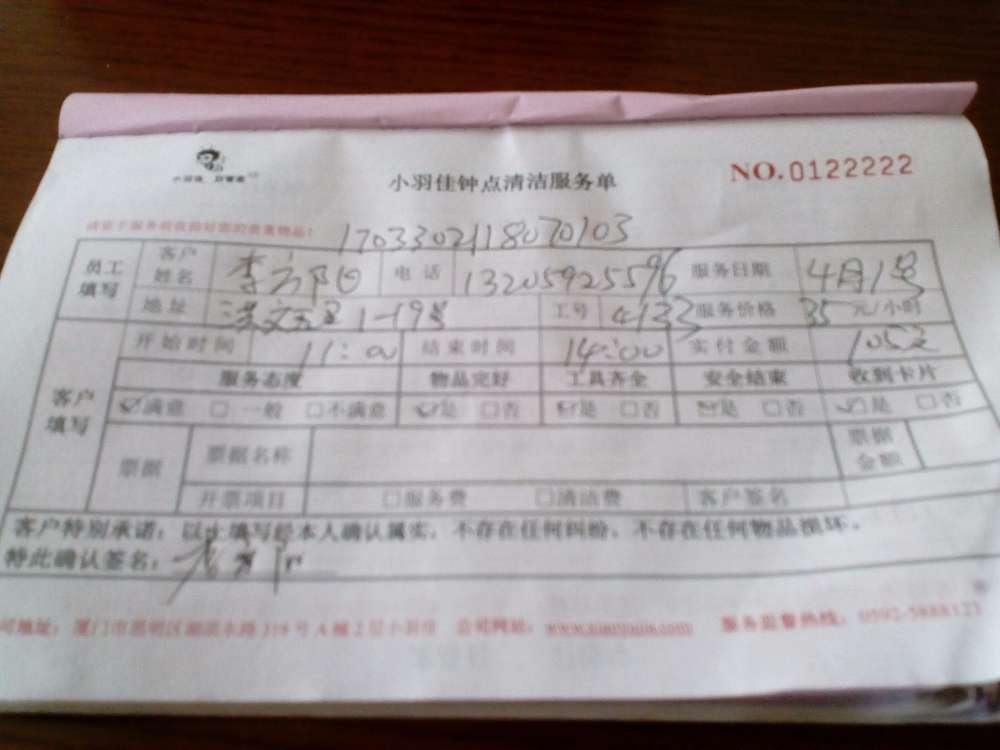 小羽佳
小羽佳钟点清洁服务单
NO.0122222
请您于服务前收拾好您的贵重物品：
1703302118070103
员工填写
客户姓名 李方阳 电话 13205925596 服务日期 4月1号
地址 洪文五里1-19号 工号 4133 服务价格 35元/小时
客户填写
开始时间 11:00 结束时间 14:00 实付金额 105元
服务态度 物品完好 工具齐全 安全结束 收到卡片
☑满意 □一般 □不满意 ☑是 □否 ☑是 □否 ☑是 □否 ☑是 □否
票据 票据名称 票据金额
开票项目 □服务费 □清洁费 客户签名
客户特别承诺：以上填写经本人确认属实，不存在任何纠纷，不存在任何物品损坏。
特此确认签名：李方阳
司地址：厦门市思明区湖滨东路319号A幢2层小羽佳 公司网站： 服务监督热线：